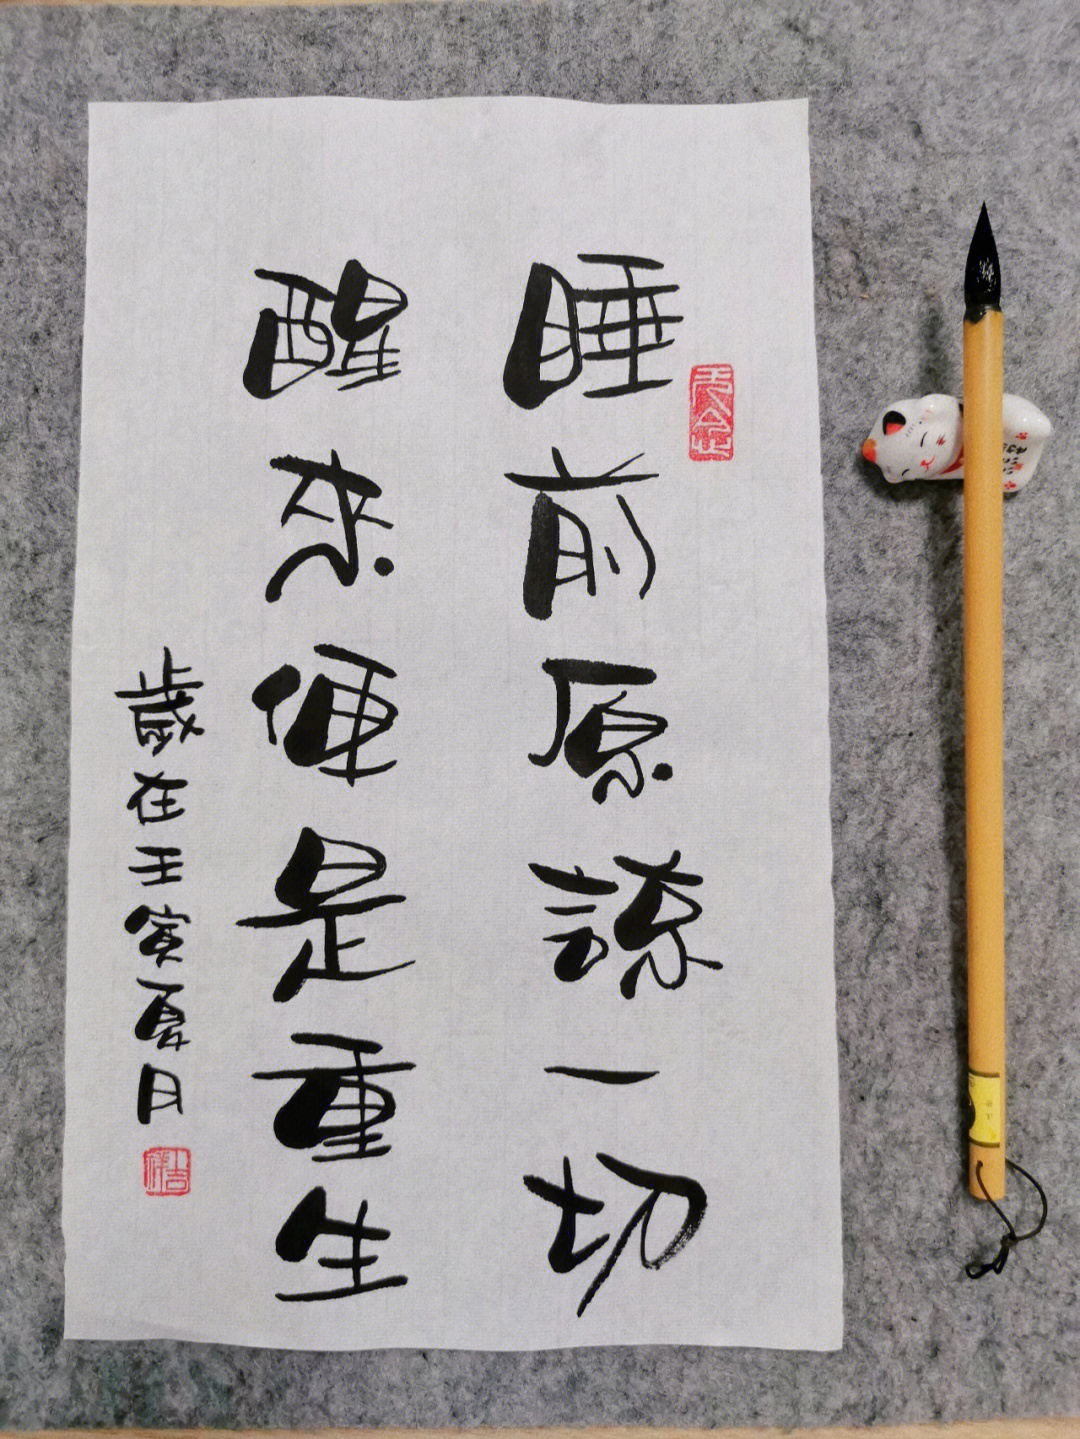 睡前原諒一切
醒来便是重生
歲在壬寅夏月